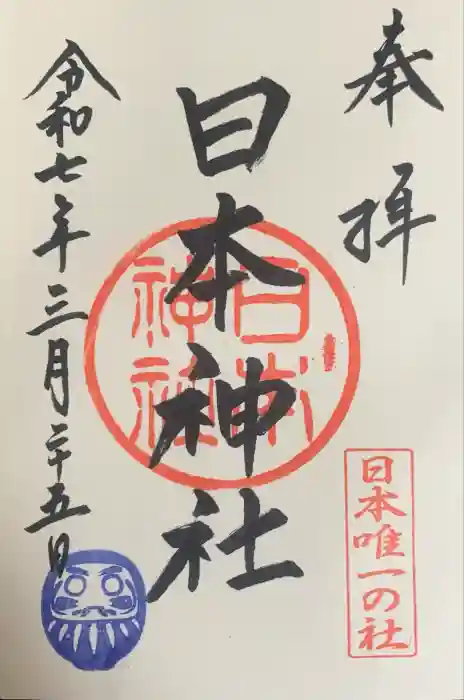 奉拝
日本唯一の社
日本神社
日本神社
令和七年三月二十五日